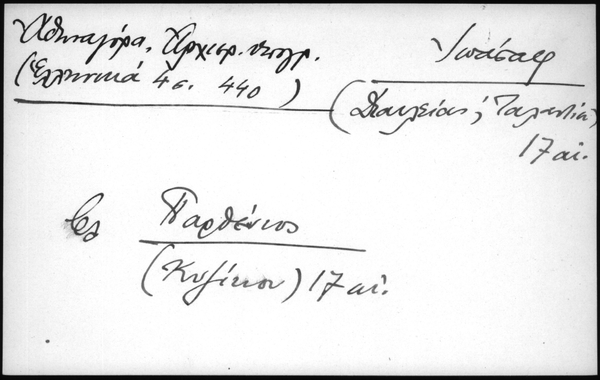 Ἀθηναγόρα, Ἀρχιερ. ὑπογρ.
(Ἑλληνικά 4 σ. 440)
Ἰωάσαφ
(Δαυλείας; Ταλαντίου)
17 αἰ.
Παρθένιος
(Κυζίκου) 17 αἰ.